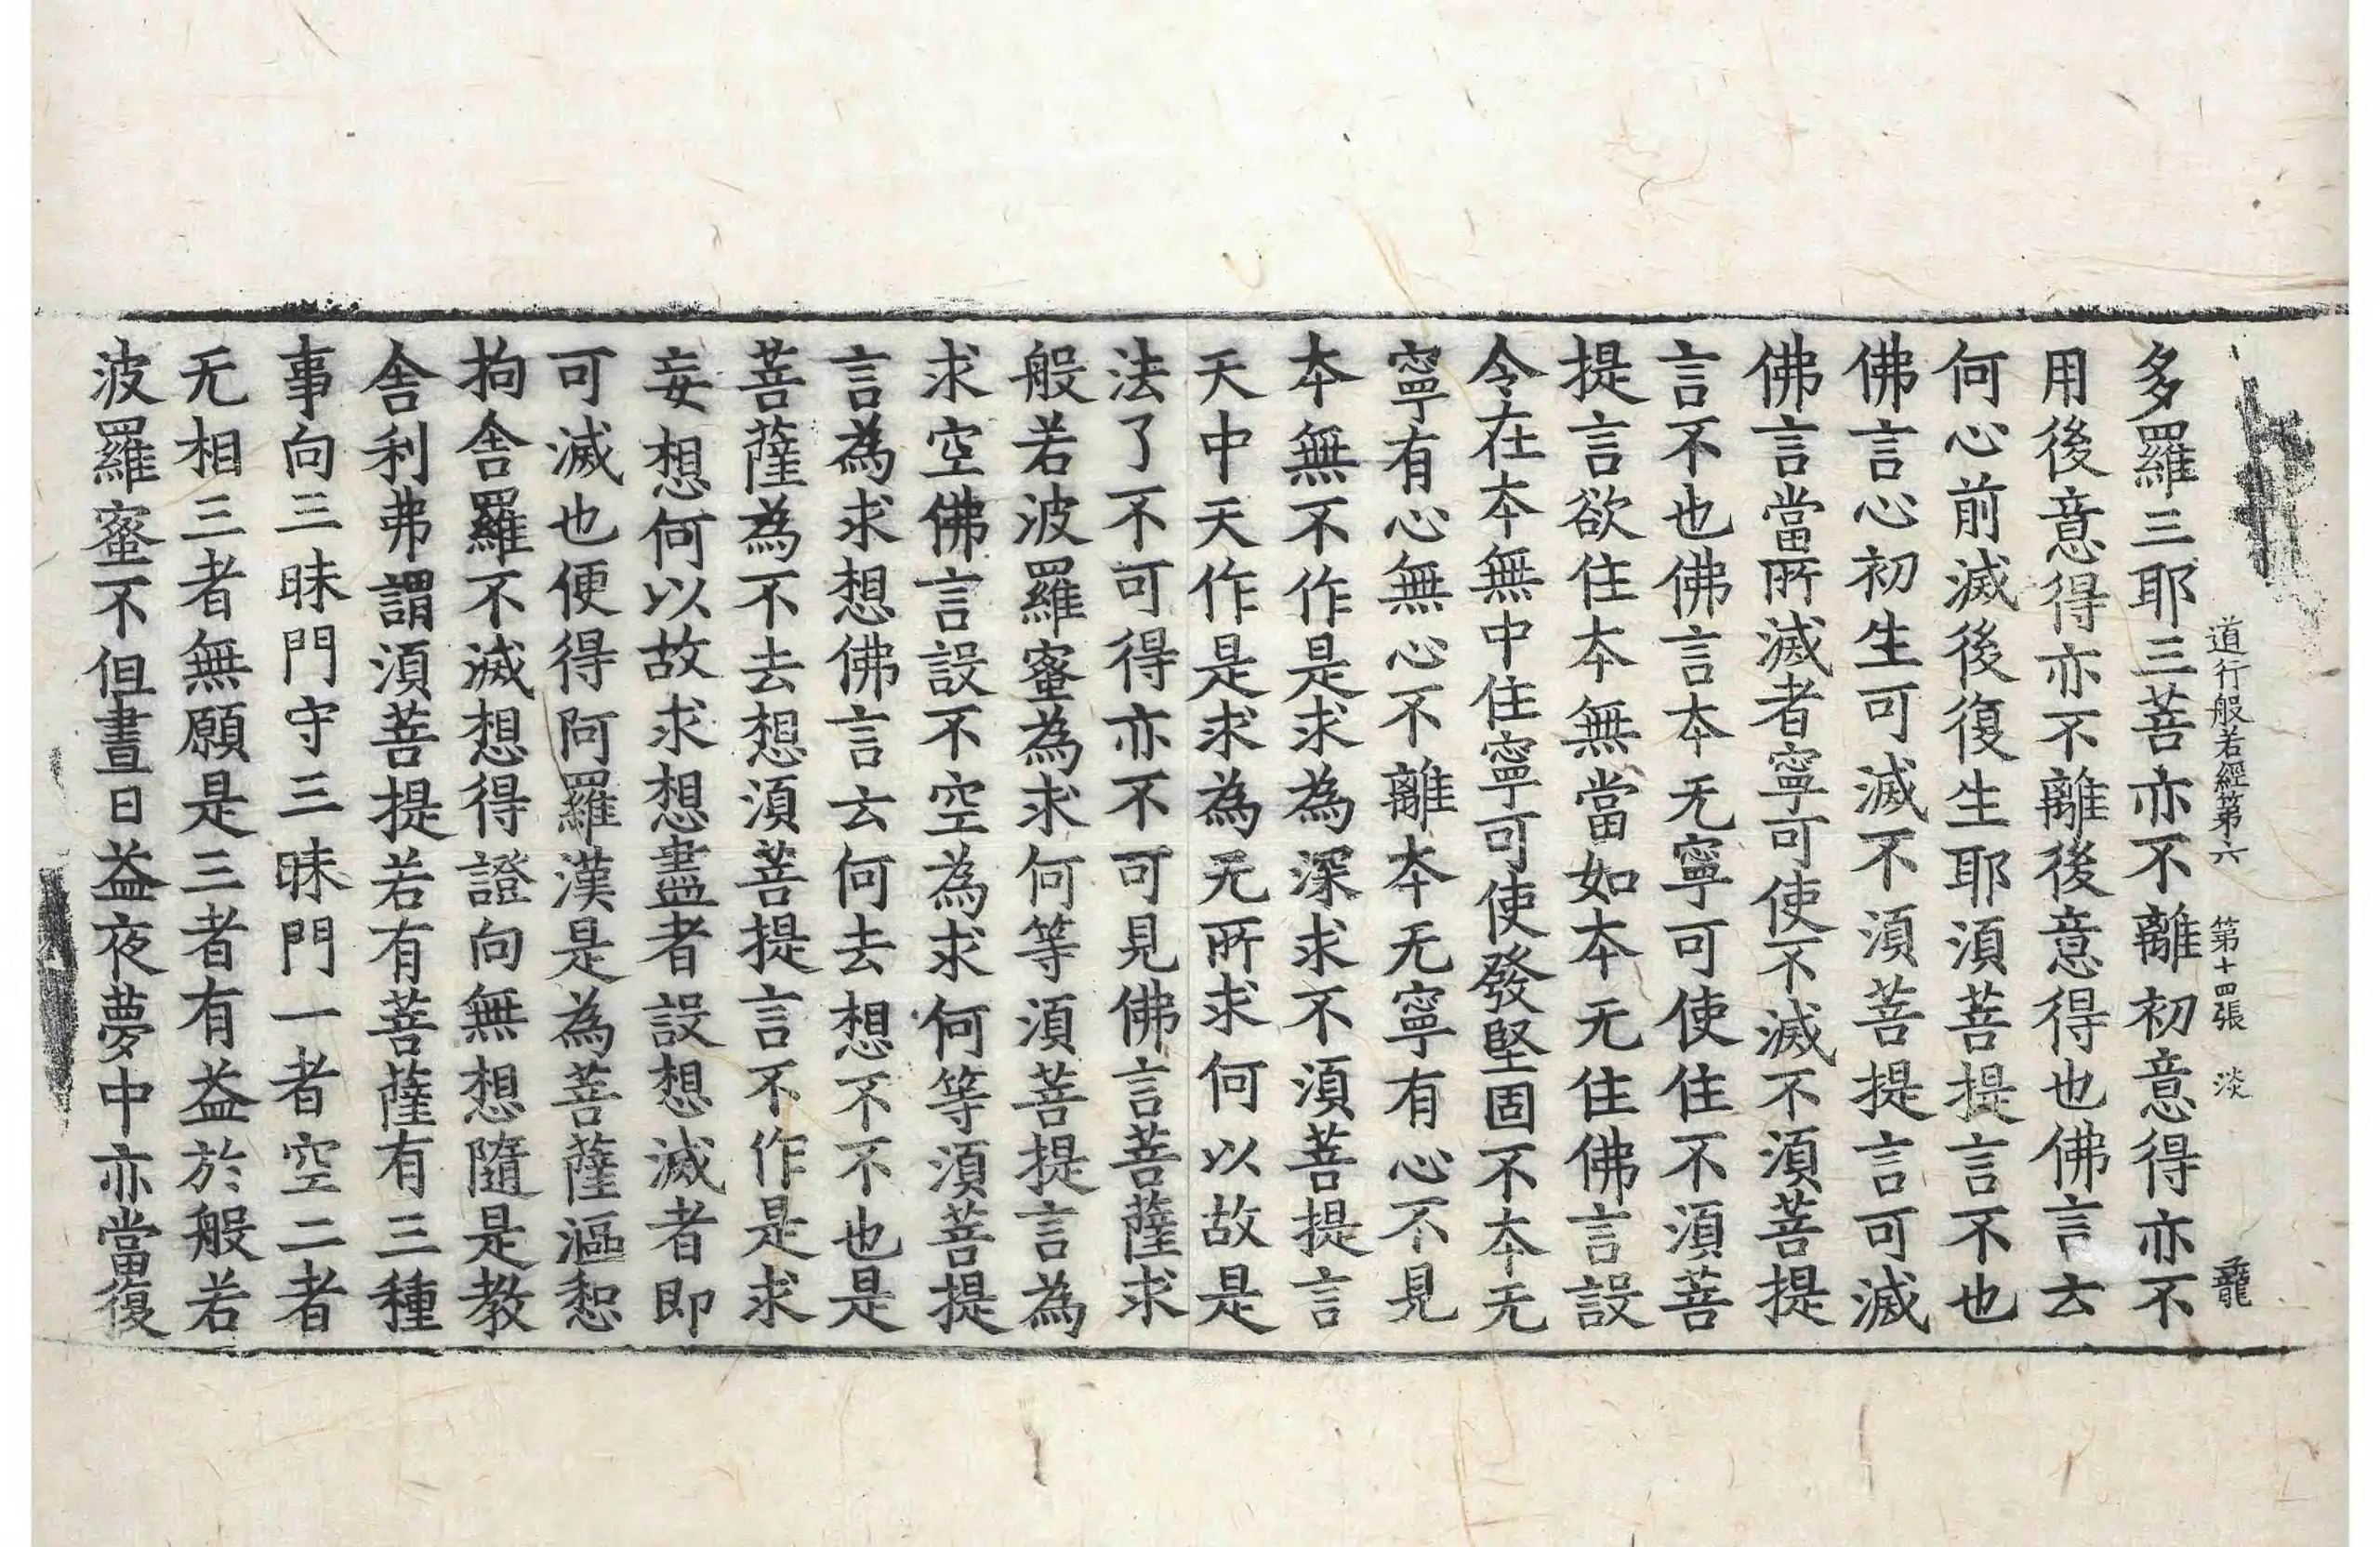 道行般若經第六 第十四張 淡
多羅三耶三菩亦不離初意得亦不
用後意得亦不離後意得也佛言云
何心前滅後復生耶須菩提言不也
佛言心初生可滅不須菩提言可滅
佛言當所滅者寧可使不滅不須菩提
言不也佛言本无寧可使住不須菩
提言欲住本無當如本无住佛言設
令在本無中住寧可使發堅固不本无
寧有心無心不離本无寧有心不見
本無不作是求為深求不須菩提言
天中天作是求為无所求何以故是
法了不可得亦不可見佛言菩薩求
般若波羅蜜為求何等須菩提言為
求空佛言設不空為求何等須菩提
言為求想佛言云何去想不不也是
菩薩為不去想須菩提言不作是求
妄想何以故求想盡者設想滅者即
可滅也便得阿羅漢是為菩薩漚惒
拘舍羅不滅想得證向無想隨是教
舍利弗謂須菩提若有菩薩有三種
事向三昧門守三昧門一者空二者
无相三者無願是三者有益於般若
波羅蜜不但晝日益夜夢中亦當復